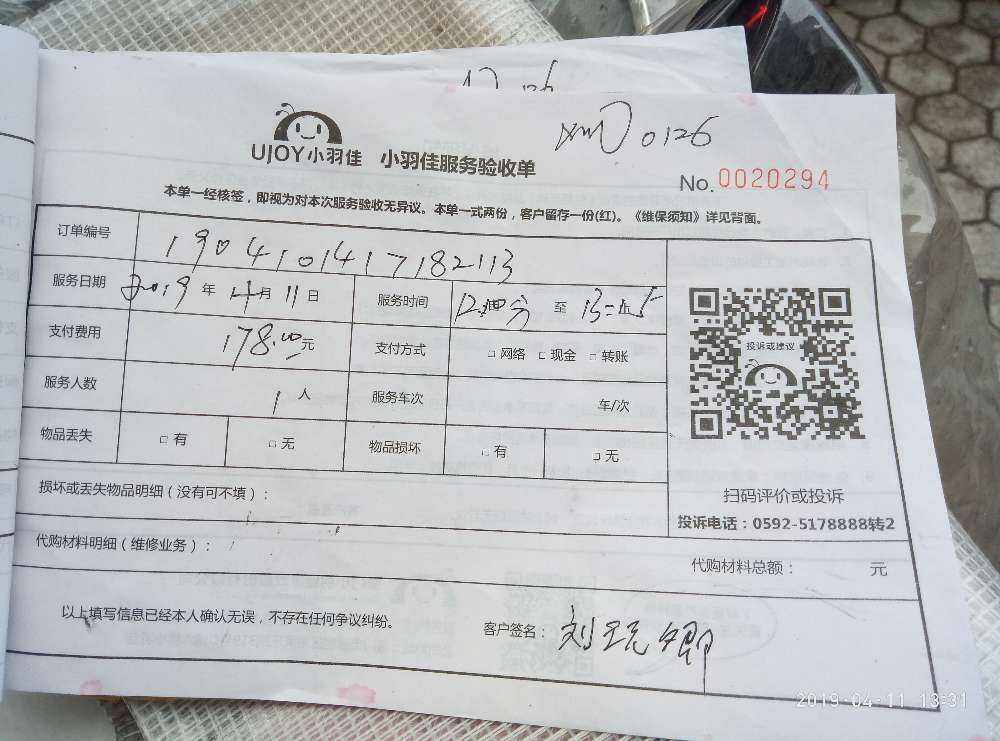 UJOY小羽佳 小羽佳服务验收单
0126
No.0020294
本单一经核签，即视为对本次服务验收无异议。本单一式两份，客户留存一份(红)。《维保须知》详见背面。
订单编号 1904101417182113
服务日期 2019年4月11日 服务时间 12:00分 至 13:
支付费用 178.00元 支付方式 □网络 □现金 □转账
服务人数 1人 服务车次 车/次
物品丢失 □有 □无 物品损坏 □有 □无
投诉或建议
扫码评价或投诉
投诉电话：0592-5178888转2
损坏或丢失物品明细（没有可不填）：
代购材料明细（维修业务）：
代购材料总额： 元
以上填写信息已经本人确认无误，不存在任何争议纠纷。
客户签名：刘 卿
2019-04-11 13:31